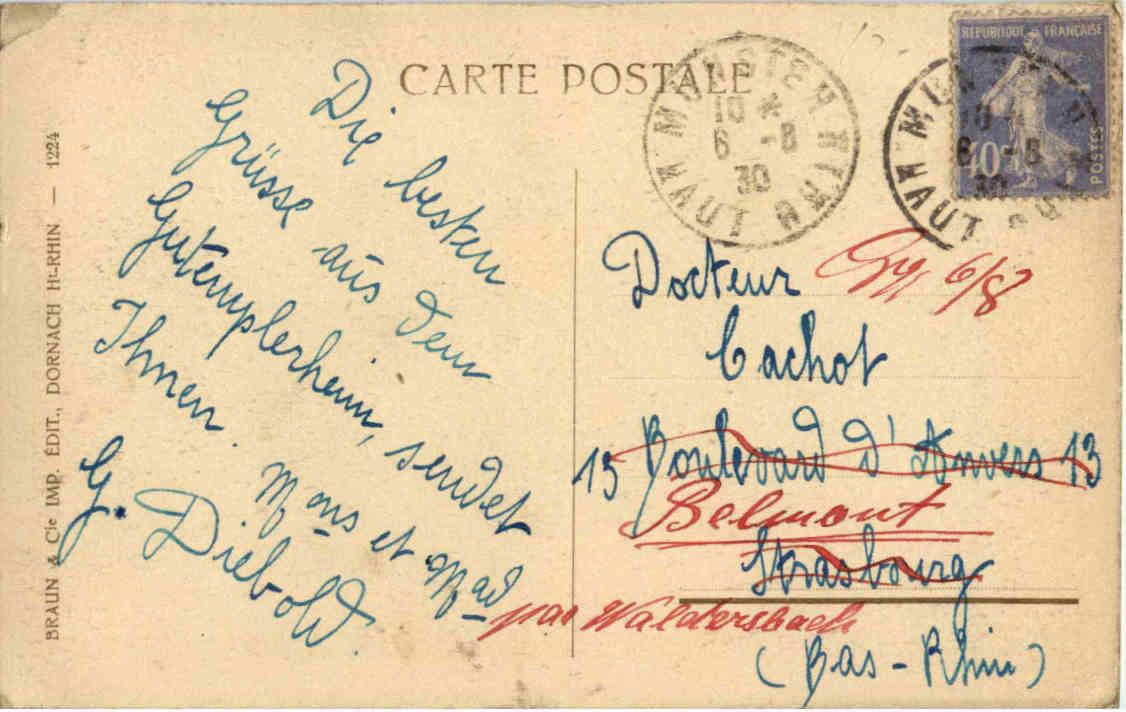 CARTE POSTALE
REPUBLIQUE FRANÇAISE
40c
POSTES
MUNSTER
10 *
6 -8
30
HAUT RHIN
MUNSTER
10 *
6 -8
30
HAUT RHIN
Die besten
Grüsse aus dem
Gutemplerheim, sendet
Ihnen.
Mons et Mad
G. Diebold.
Docteur
6/8
Cachot
13 Boulevard d'Anvers 13
Belmont
Strasbourg
par Waldersbach
(Bas-Rhin)
BRAUN & Cie IMP. ÉDIT., DORNACH Ht-RHIN — 1224